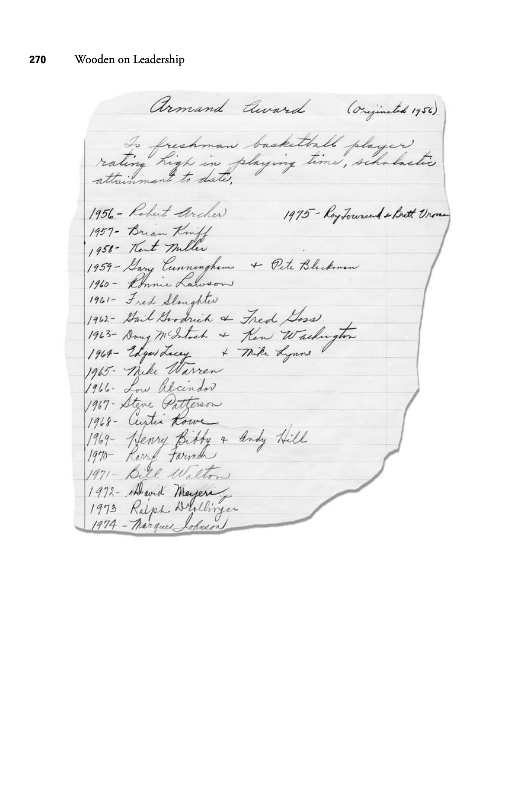 270 Wooden on Leadership
Armand Award (Originated 1956)
To freshman basketball player
rating high in playing time, scholastic
attainment to date.
1956- Robert Archer 1975- Ray Townsend & Brett Vroman
1957- Brian Kniff
1958- Kent Miller
1959- Gary Cunningham & Pete Blackman
1960- Ronnie Lawson
1961- Fred Slaughter
1962- Gail Goodrich & Fred Goss
1963- Doug McIntosh & Ken Washington
1964- Edgar Lacey & Mike Lynne
1965- Mike Warren
1966- Lew Alcindor
1967- Steve Patterson
1968- Curtis Rowe
1969- Henry Bibby & Andy Hill
1970- Larry Farmer
1971- Bill Walton
1972- David Meyers
1973 Ralph Drollinger
1974 - Marques Johnson